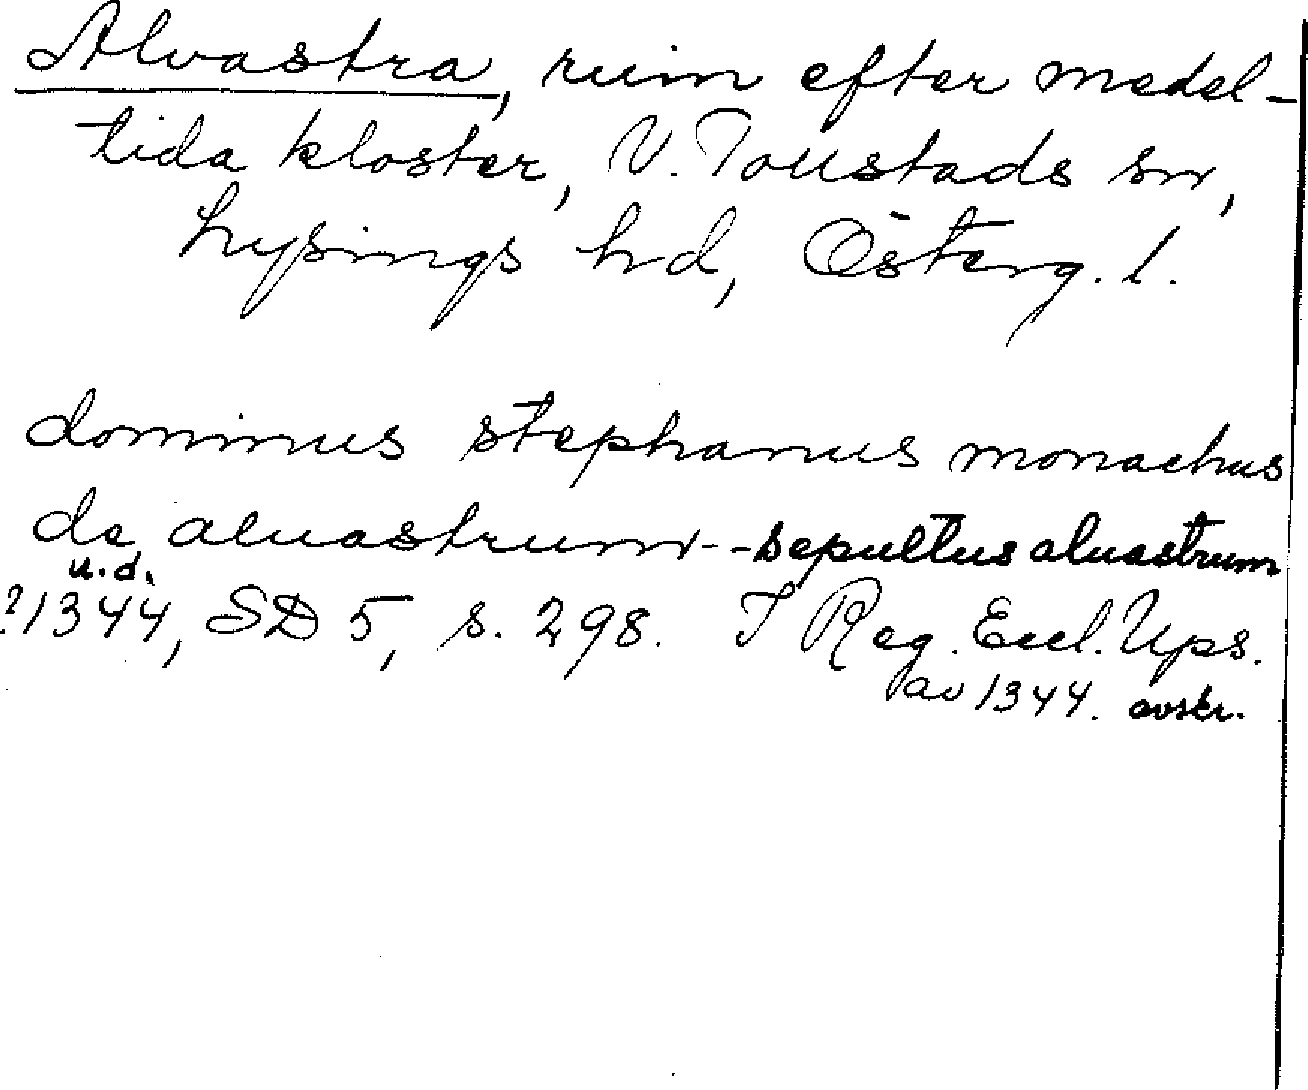 Alvastra, ruin efter medel-
tida kloster, V. Tollstads sn,
Lysings hd, Österg. l.
dominus stephanus monachus
de aluastrum - - sepultus aluastrum
u.d.
?1344, SD 5, s. 298. I Reg. Eccl. Ups.
av 1344. avskr.